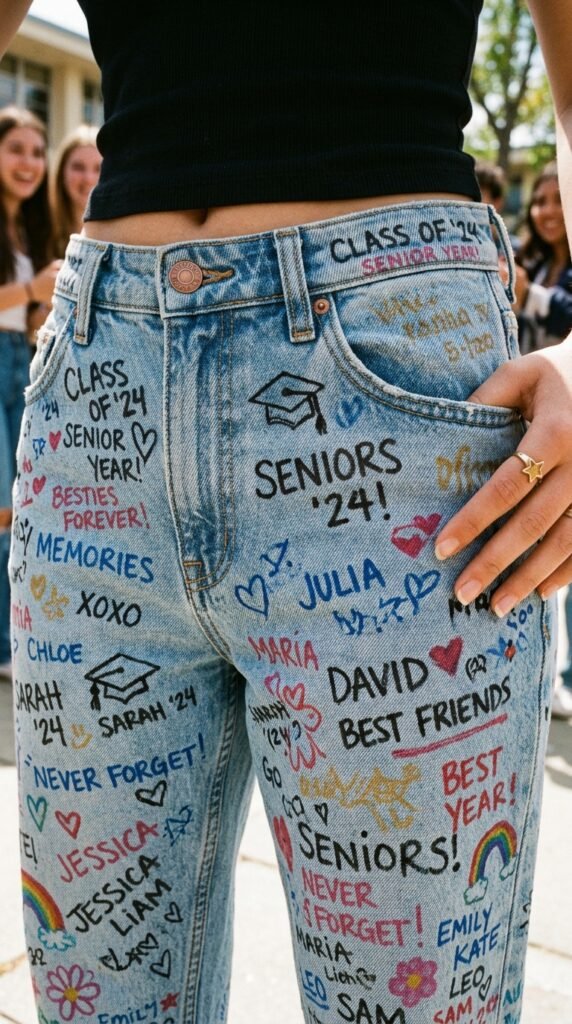 CLASS OF '24
SENIOR YEAR!
CLASS
OF '24
SENIOR
YEAR!
'24
BESTIES
FOREVER!
MEMORIES
XOXO
CHLOE
SARAH
'24
SARAH '24
NEVER FORGET!
JESSICA
JESSICA
LIAM
Emily
SENIORS
'24!
JULIA
MARÍA
DAVID
BEST FRIENDS
GO
BEST
YEAR!
SENIORS!
NEVER
FORGET!
MARIA
LEO
SAM
EMILY
KATE
LEO
SAM